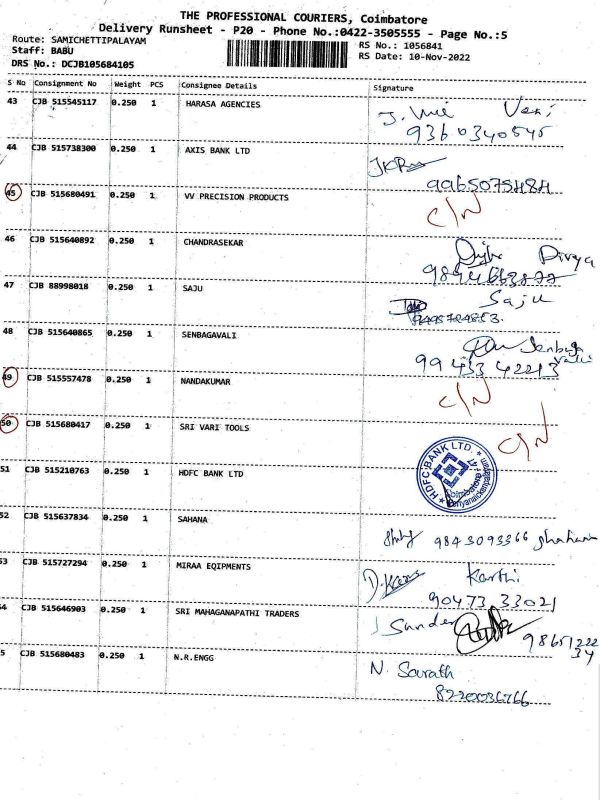 THE PROFESSIONAL COURIERS, Coimbatore
Delivery Runsheet - P20 - Phone No.:0422-3505555 - Page No.:5
Route: SAMICHETTIPALAYAM RS No.: 1056841
Staff: BABU RS Date: 10-Nov-2022
DRS No.: DCJB105684105
S No Consignment No Weight PCS Consignee Details Signature
43 CJB 515545117 0.250 1 HARASA AGENCIES
J. Veni
9360340545
44 CJB 515738300 0.250 1 AXIS BANK LTD
9965075484
45 CJB 515680491 0.250 1 VV PRECISION PRODUCTS C/N
46 CJB 515640892 0.250 1 CHANDRASEKAR Divya
47 CJB 88998018 0.250 1 SAJU Saju
48 CJB 515640865 0.250 1 SENBAGAVALI Senbaga
valli
99433 42213
49 CJB 515557478 0.250 1 NANDAKUMAR C/N
50 CJB 515680417 0.250 1 SRI VARI TOOLS C/N
51 CJB 515210763 0.250 1 HDFC BANK LTD HDFC BANK LTD. Coimbatore
52 CJB 515637834 0.250 1 SAHANA 9843093366
53 CJB 515727294 0.250 1 MIRAA EQIPMENTS Karthi
90473 33021
4 CJB 515646903 0.250 1 SRI MAHAGANAPATHI TRADERS Sunder
98651222
34
5 CJB 515680483 0.250 1 N.R.ENGG N. Sarath
8220036766